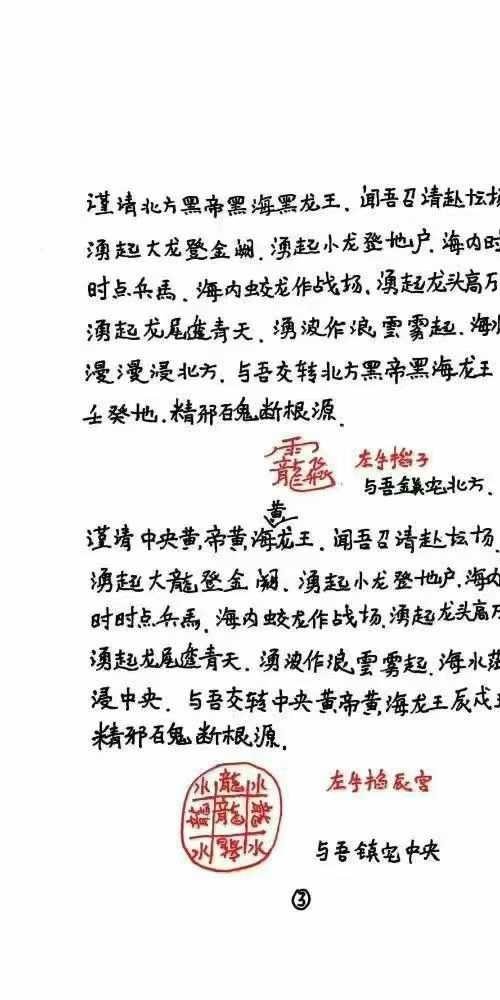 谨请北方黑帝黑海黑龙王.闻吾召请赴坛场
涌起大龙登金阙.涌起小龙登地户.海内时
时点兵馬.海内蛟龙作战场.涌起龙头高万
湧起龙尾透青天.湧波作浪雲雾起.海水
漫漫浸北方.与吾交转北方黑帝黑海龙王
壬癸地.精邪百鬼断根源.
左手掐子
与吾镇宅北方.
黄
谨请中央黄帝黄海龙王.闻吾召请赴坛场.
湧起大龍登金阙.湧起小龙登地户.海内
时时点兵馬.海内蛟龙作战场.湧起龙头高万
湧起龙尾透青天.湧波作浪雲雾起.海水
浸中央.与吾交转中央黄帝黄海龙王辰戌
精邪百鬼断根源.
水 龍 水
龍 龍 龍
水 龍 水
左手掐辰宫
与吾镇宅中央
③